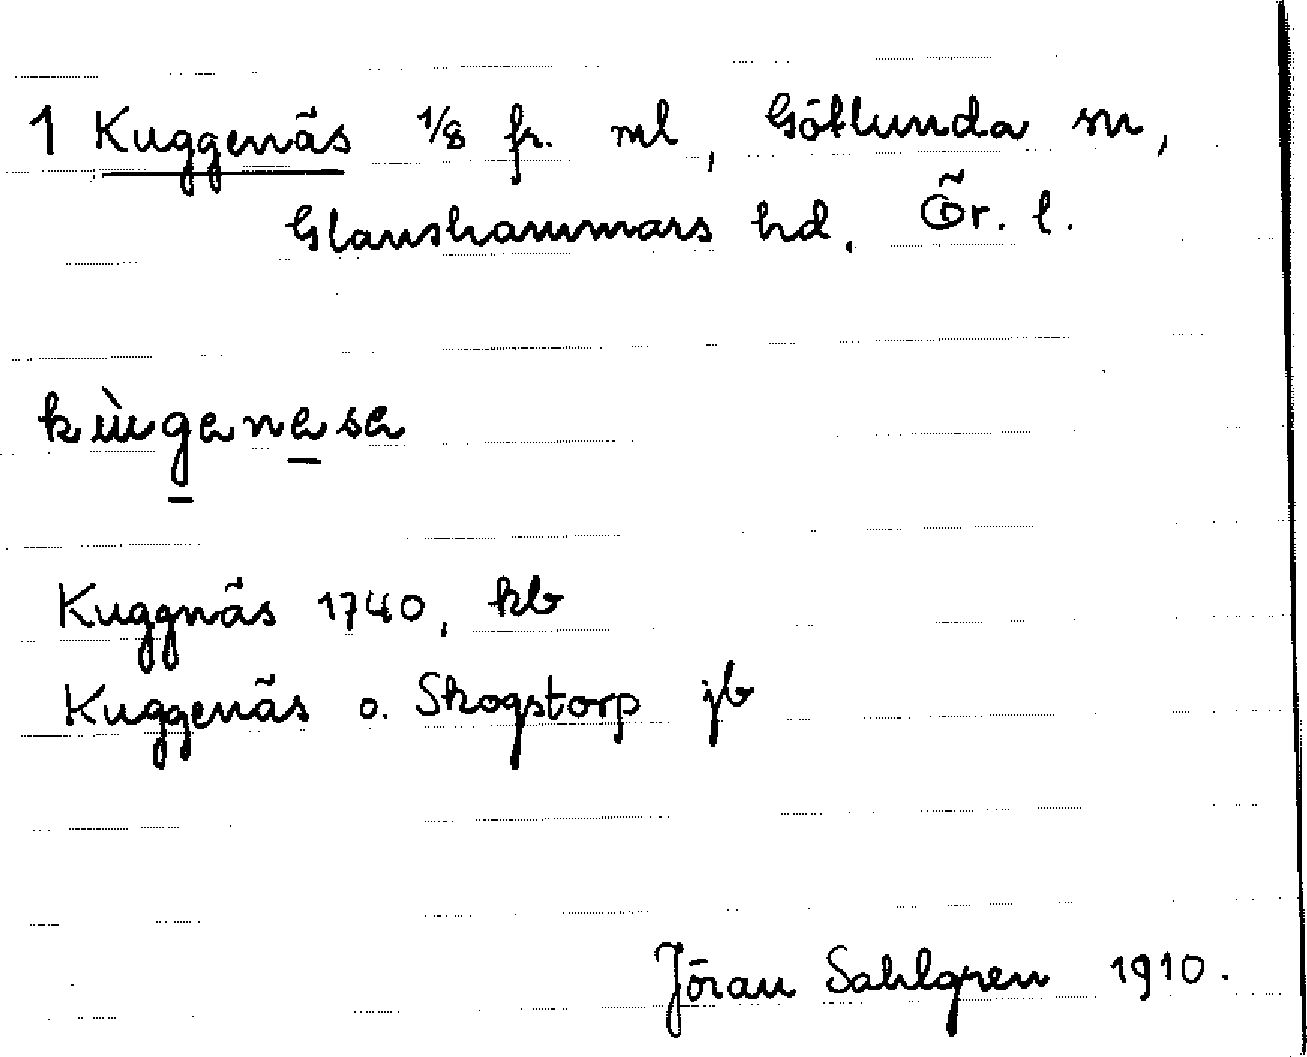 1 Kuggenäs 1/8 fr. ml, Götlunda sn,
Glanshammars hd, Ör. l.
kùgenese
Kuggnäs 1740, kb
Kuggenäs o. Skogstorp jb
Jöran Sahlgren 1910.